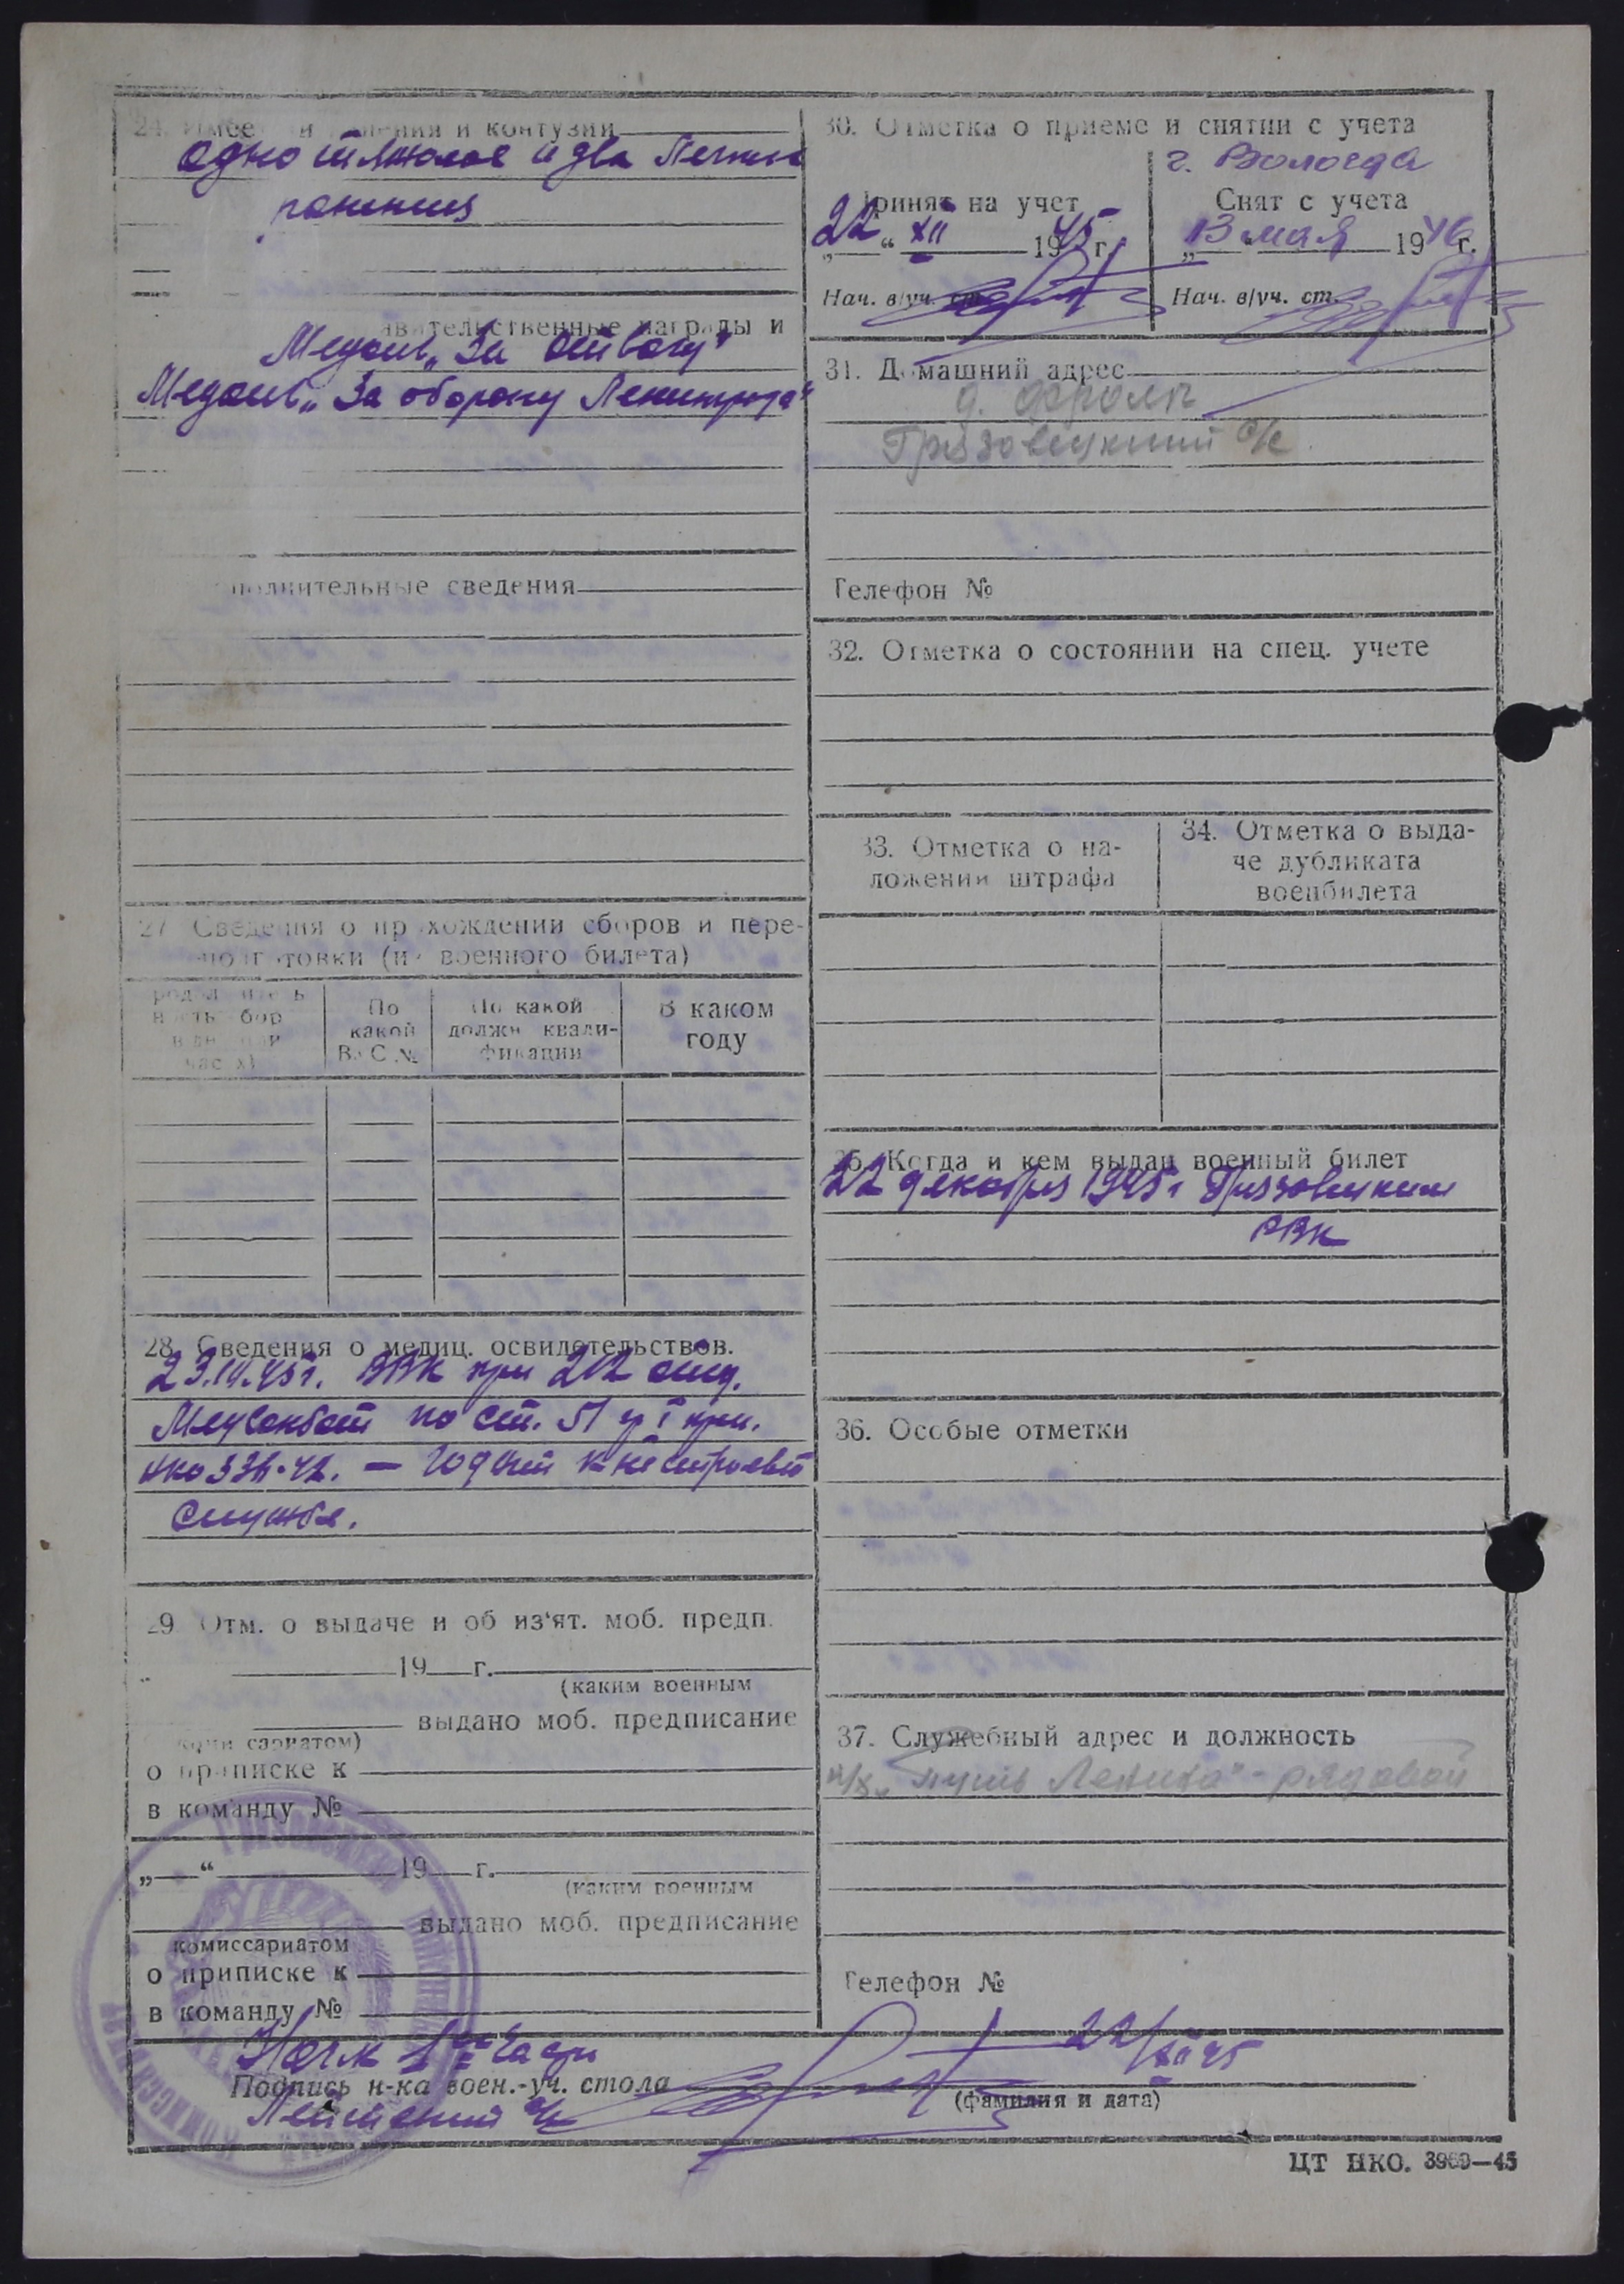 24. Имее и ения и контузии
одно тяжолое и два Легких
ранения
авительственные награды и
Медаль „За отвагу"
Медаль „За оборону Ленинграда"
полнительные сведения
27 Сведения о пр хождении сборов и пере-
подготовки (из военного билета)
По
какой
ВУС №
По какой
должн квали-
фикации
В каком
году
28. Сведения о медиц. освидетельствов.
23.10.45г. ВВК при 202 отд.
Медсанбат по ст. 51 гр I при.
НКО 336-42. — годен к нестроевой
службе.
29 Отм. о выдаче и об из'ят. моб. предп.
19 г.
(каким военным
выдано моб. предписание
сариатом)
о приписке к
в команду №
„ “ 19 г.
(каким военным
выдано моб. предписание
комиссариатом
о приписке к
в команду №
30. Отметка о приеме и снятии с учета
г. Вологда
Принят на учет
22 “ XII 1945 г.
Нач. в/уч. ст.
Снят с учета
„13 мая 1946 г.
Нач. в/уч. ст.
31. Домашний адрес
д. Фроль
Грязовецкий с/с
Телефон №
32. Отметка о состоянии на спец. учете
33. Отметка о на-
ложении штрафа
34. Отметка о выда-
че дубликата
военбилета
35. Когда и кем выдан военный билет
22 декабря 1945г Грязовецким
РВК
36. Особые отметки
37. Служебный адрес и должность
к/х „ путь Ленина" - рядовой
Телефон №
Нач-к 1ой части
Подпись н-ка воен.-уч. стола
22/XII 45
(фамилия и дата)
Лейтенант а/с
ЦТ НКО. 3969—45